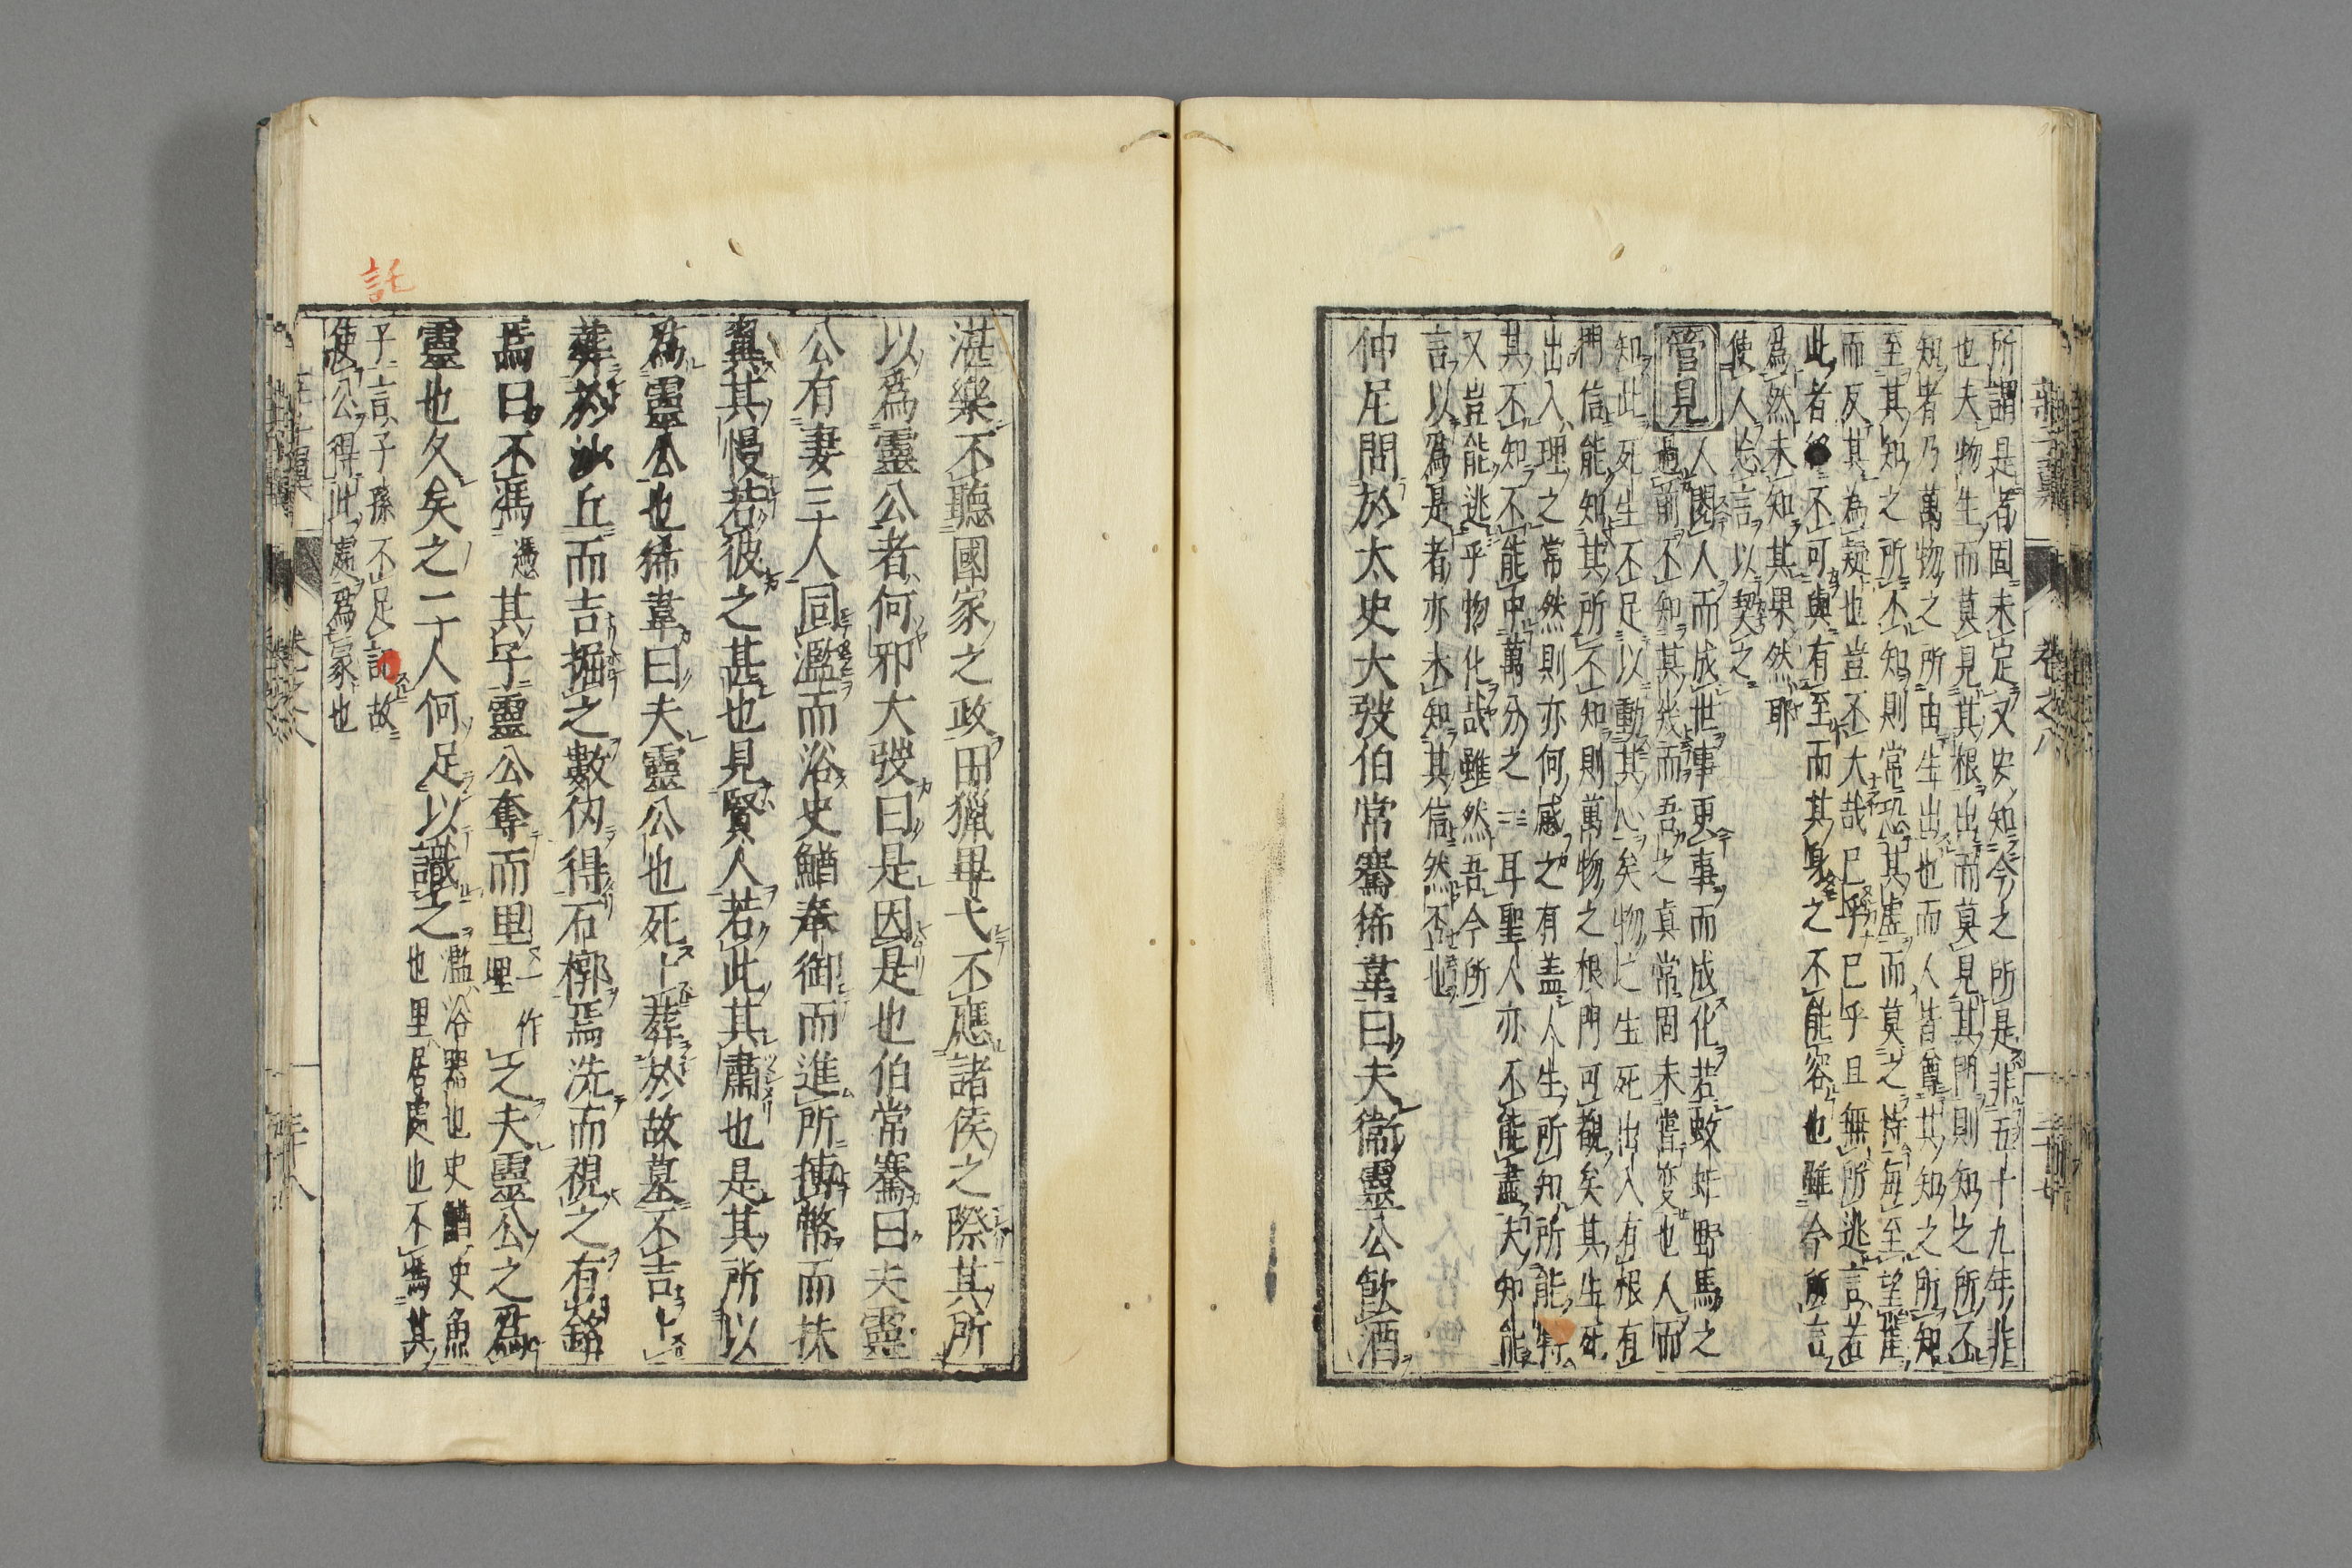 所謂是者固未定又安知今之所是非五十九年非
也夫物生而莫見其根出而莫見其門則知之所不
知者乃萬物之所由生出也而人皆尊其知之所知
至其知之所不知則常恐其虛而莫之恃每至望崖
而反其為疑也豈不大哉已乎已乎且無所逃言若
此者不可與有至而其身之不能容也雖今所言
為然未知其果然耶
使人忘言以契之
管見 人閱人而成世事更事而成化若蚊蚌野馬之
過前不知其幾而吾之真常固未嘗変也人而
知此死生不足以動其心矣物之生死出入有根有
門信能知其所不知則萬物之根門可觀矣其生死
出入理之常然則亦何感之有盖人生所知所能特
其不知不能中萬分之一二耳聖人亦不能盡夫知能
又豈能逃乎物化哉雖然吾今所
言以為是者亦未知其信然否也
仲尼問於太史大弢伯常騫狶韋曰夫衞靈公飲酒
湛樂不聽國家之政田獵畢弋不應諸侯之際其所
以為靈公者何邪大弢曰是因是也伯常騫曰夫靈
公有妻三人同濫而浴史鰌奉御而進所搏幣而扶
翼其慢若彼之甚也見賢人若此其肅也是其所以
為靈公也狶韋曰夫靈公也死卜葬於故墓不吉卜
葬於沙丘而吉掘之數仞得石槨焉洗而視之有銘
焉曰不馮 憑 其子靈公奪而里 一作埋 之夫靈公之為
靈也久矣之二人何足以識之 濫浴器也史鰌史魚
也里居處也不馮其
子言子孫不足託故
使公得此處為冢也
託
卷之八